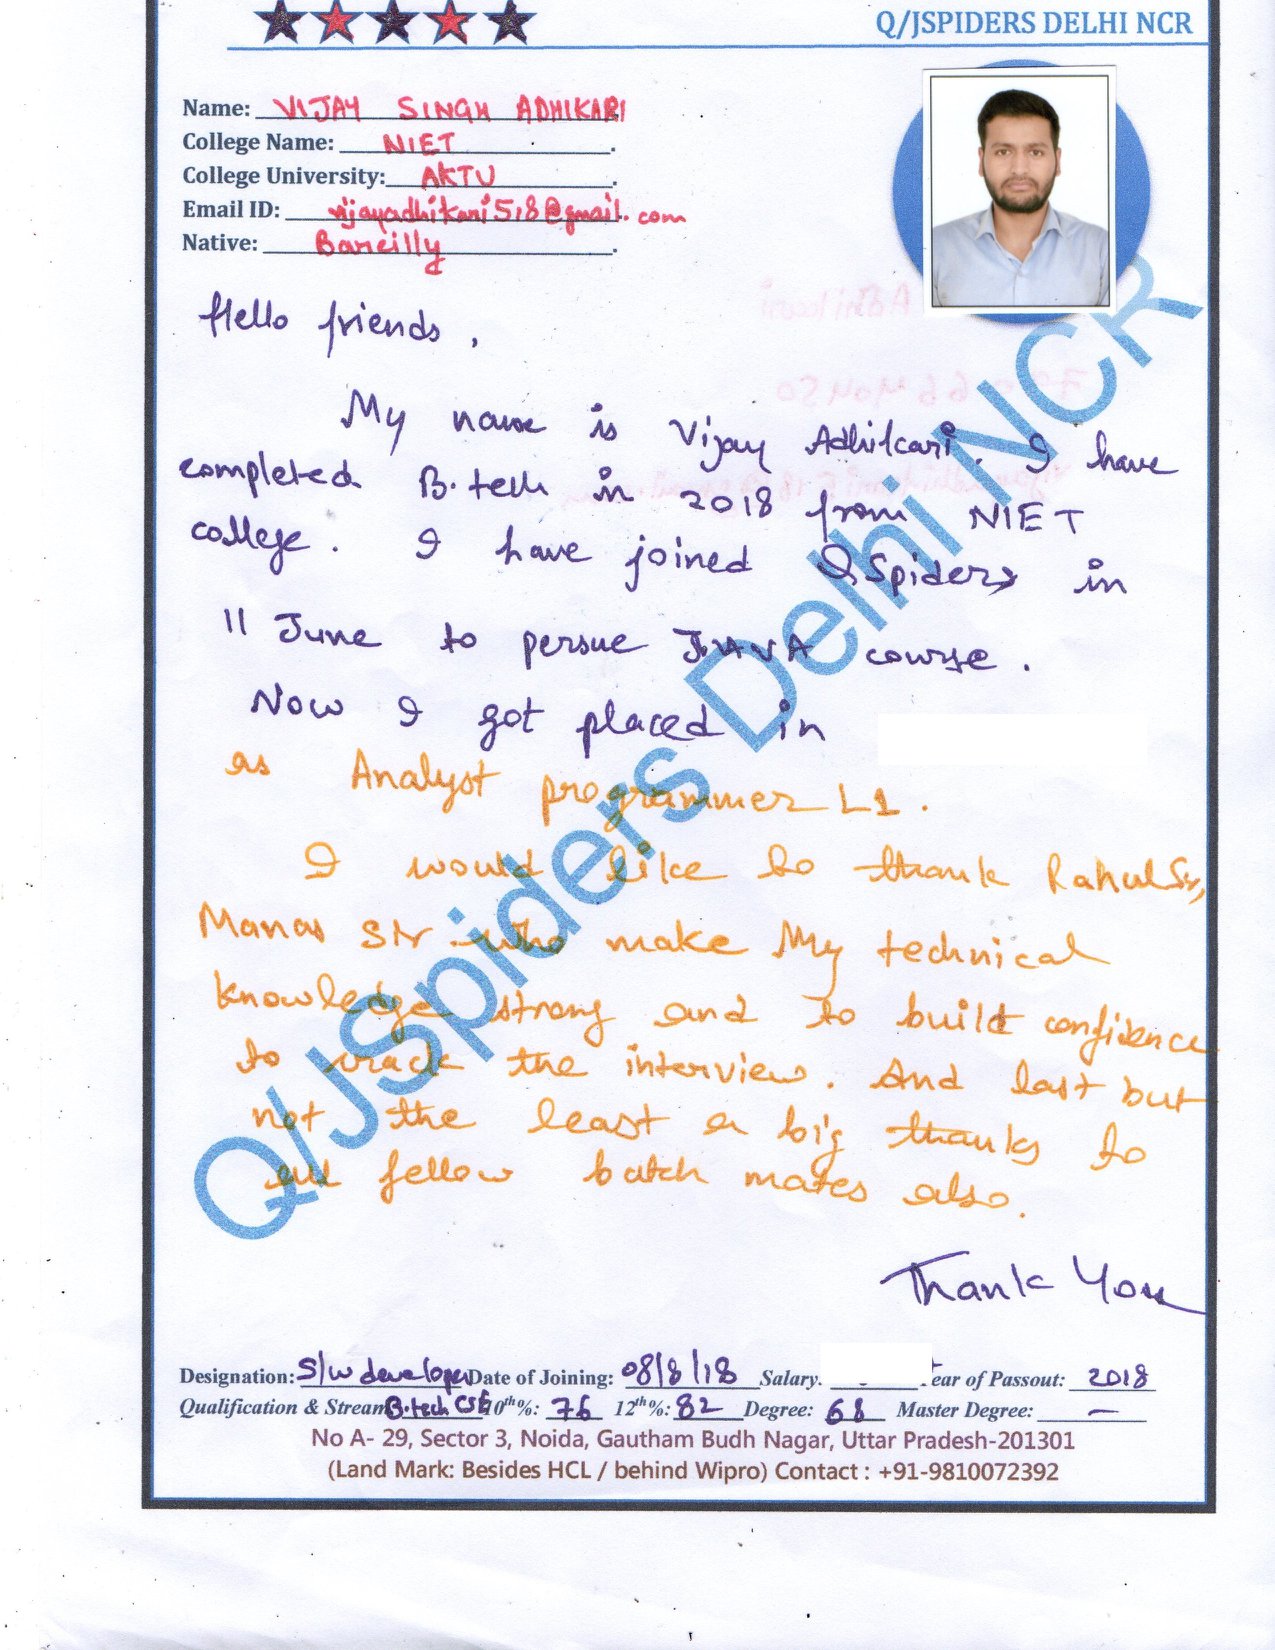 Q/JSPIDERS DELHI NCR
Name: VIJAY SINGH ADHIKARI
College Name: NIET.
College University: AKTU.
Email ID: vijayadhikari518@gmail.com
Native: Bareilly.
Hello friends,
My name is Vijay Adhikari. I have
completed B.tech in 2018 from NIET
college. I have joined QSpiders in
11 June to persue JAVA course.
Now I got placed in
as Analyst programmer L1.
I would like to thank Rahul Sir,
Manas Sir who make My technical
knowledge strong and to build confidence
to crack the interview. And last but
not the least a big thanks to
all fellow batch mates also.
Thank You
Designation: S/w developer Date of Joining: 08/8/18 Salary. ear of Passout: 2018
Qualification & Stream B.tech CSE 10th%: 76 12th%: 82 Degree: 68 Master Degree: —
No A- 29, Sector 3, Noida, Gautham Budh Nagar, Uttar Pradesh-201301
(Land Mark: Besides HCL / behind Wipro) Contact : +91-9810072392
Q/JSpiders Delhi NCR